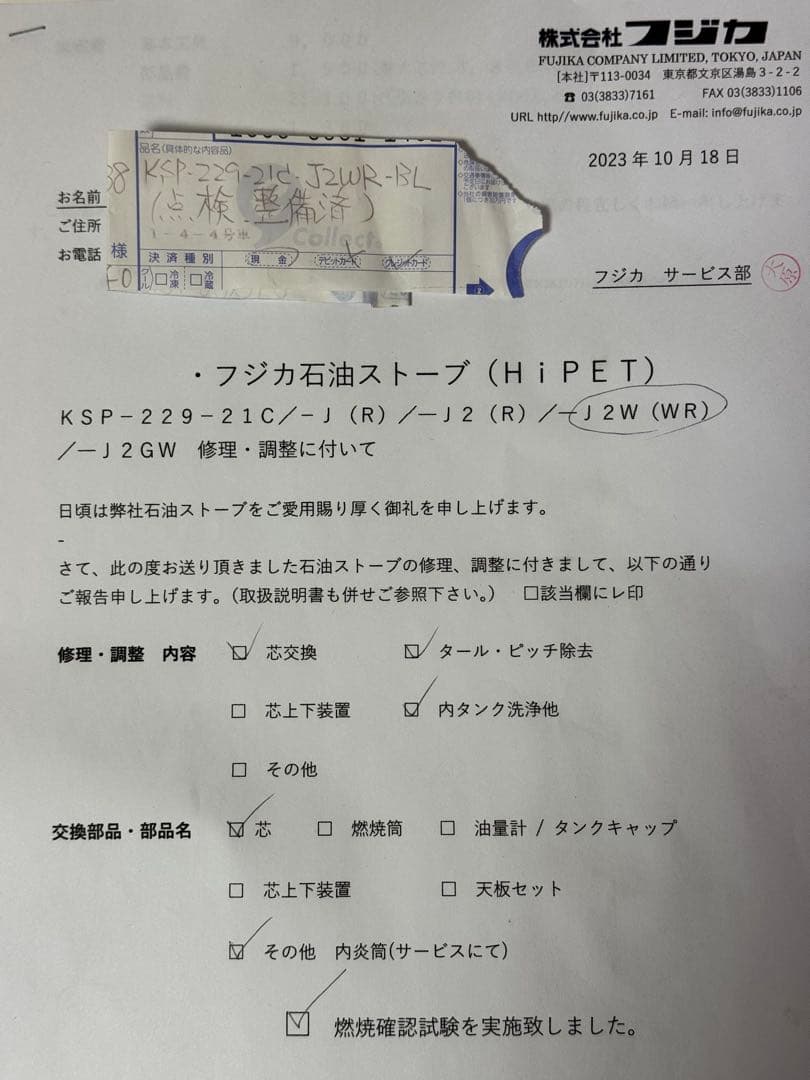 株式会社フジカ
FUJIKA COMPANY LIMITED, TOKYO, JAPAN
[本社]〒113-0034 東京都文京区湯島3-2-2
☎ 03(3833)7161 FAX 03(3833)1106
URL http//www.fujika.co.jp E-mail: info@fujika.co.jp
2023年10月18日
品名(具体的な内容品)
38 KSP-229-21C-J2WR-BL
(点検、整備済)
1-4-4号車
Collect
お名前
ご住所
お電話 様
決済種別 現金 デビットカード クレジットカード
クール □冷凍 □冷蔵
フジカ サービス部
・フジカ石油ストーブ(HiPET)
KSP-229-21C/-J(R)/-J2(R)/-J2W(WR)
/-J2GW 修理・調整に付いて
日頃は弊社石油ストーブをご愛用賜り厚く御礼を申し上げます。
-
さて、此の度お送り頂きました石油ストーブの修理、調整に付きまして、以下の通り
ご報告申し上げます。(取扱説明書も併せご参照下さい。) □該当欄にレ印
修理・調整 内容 ☑ 芯交換 ☑ タール・ピッチ除去
□ 芯上下装置 ☑ 内タンク洗浄他
□ その他
交換部品・部品名 ☑ 芯 □ 燃焼筒 □ 油量計 / タンクキャップ
□ 芯上下装置 □ 天板セット
☑ その他 内炎筒(サービスにて)
☑ 燃焼確認試験を実施致しました。